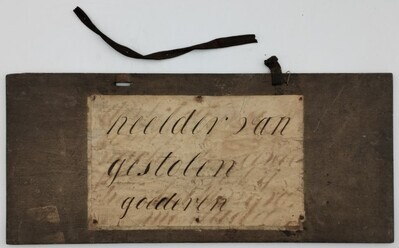 heelder van
gestolen
goederen